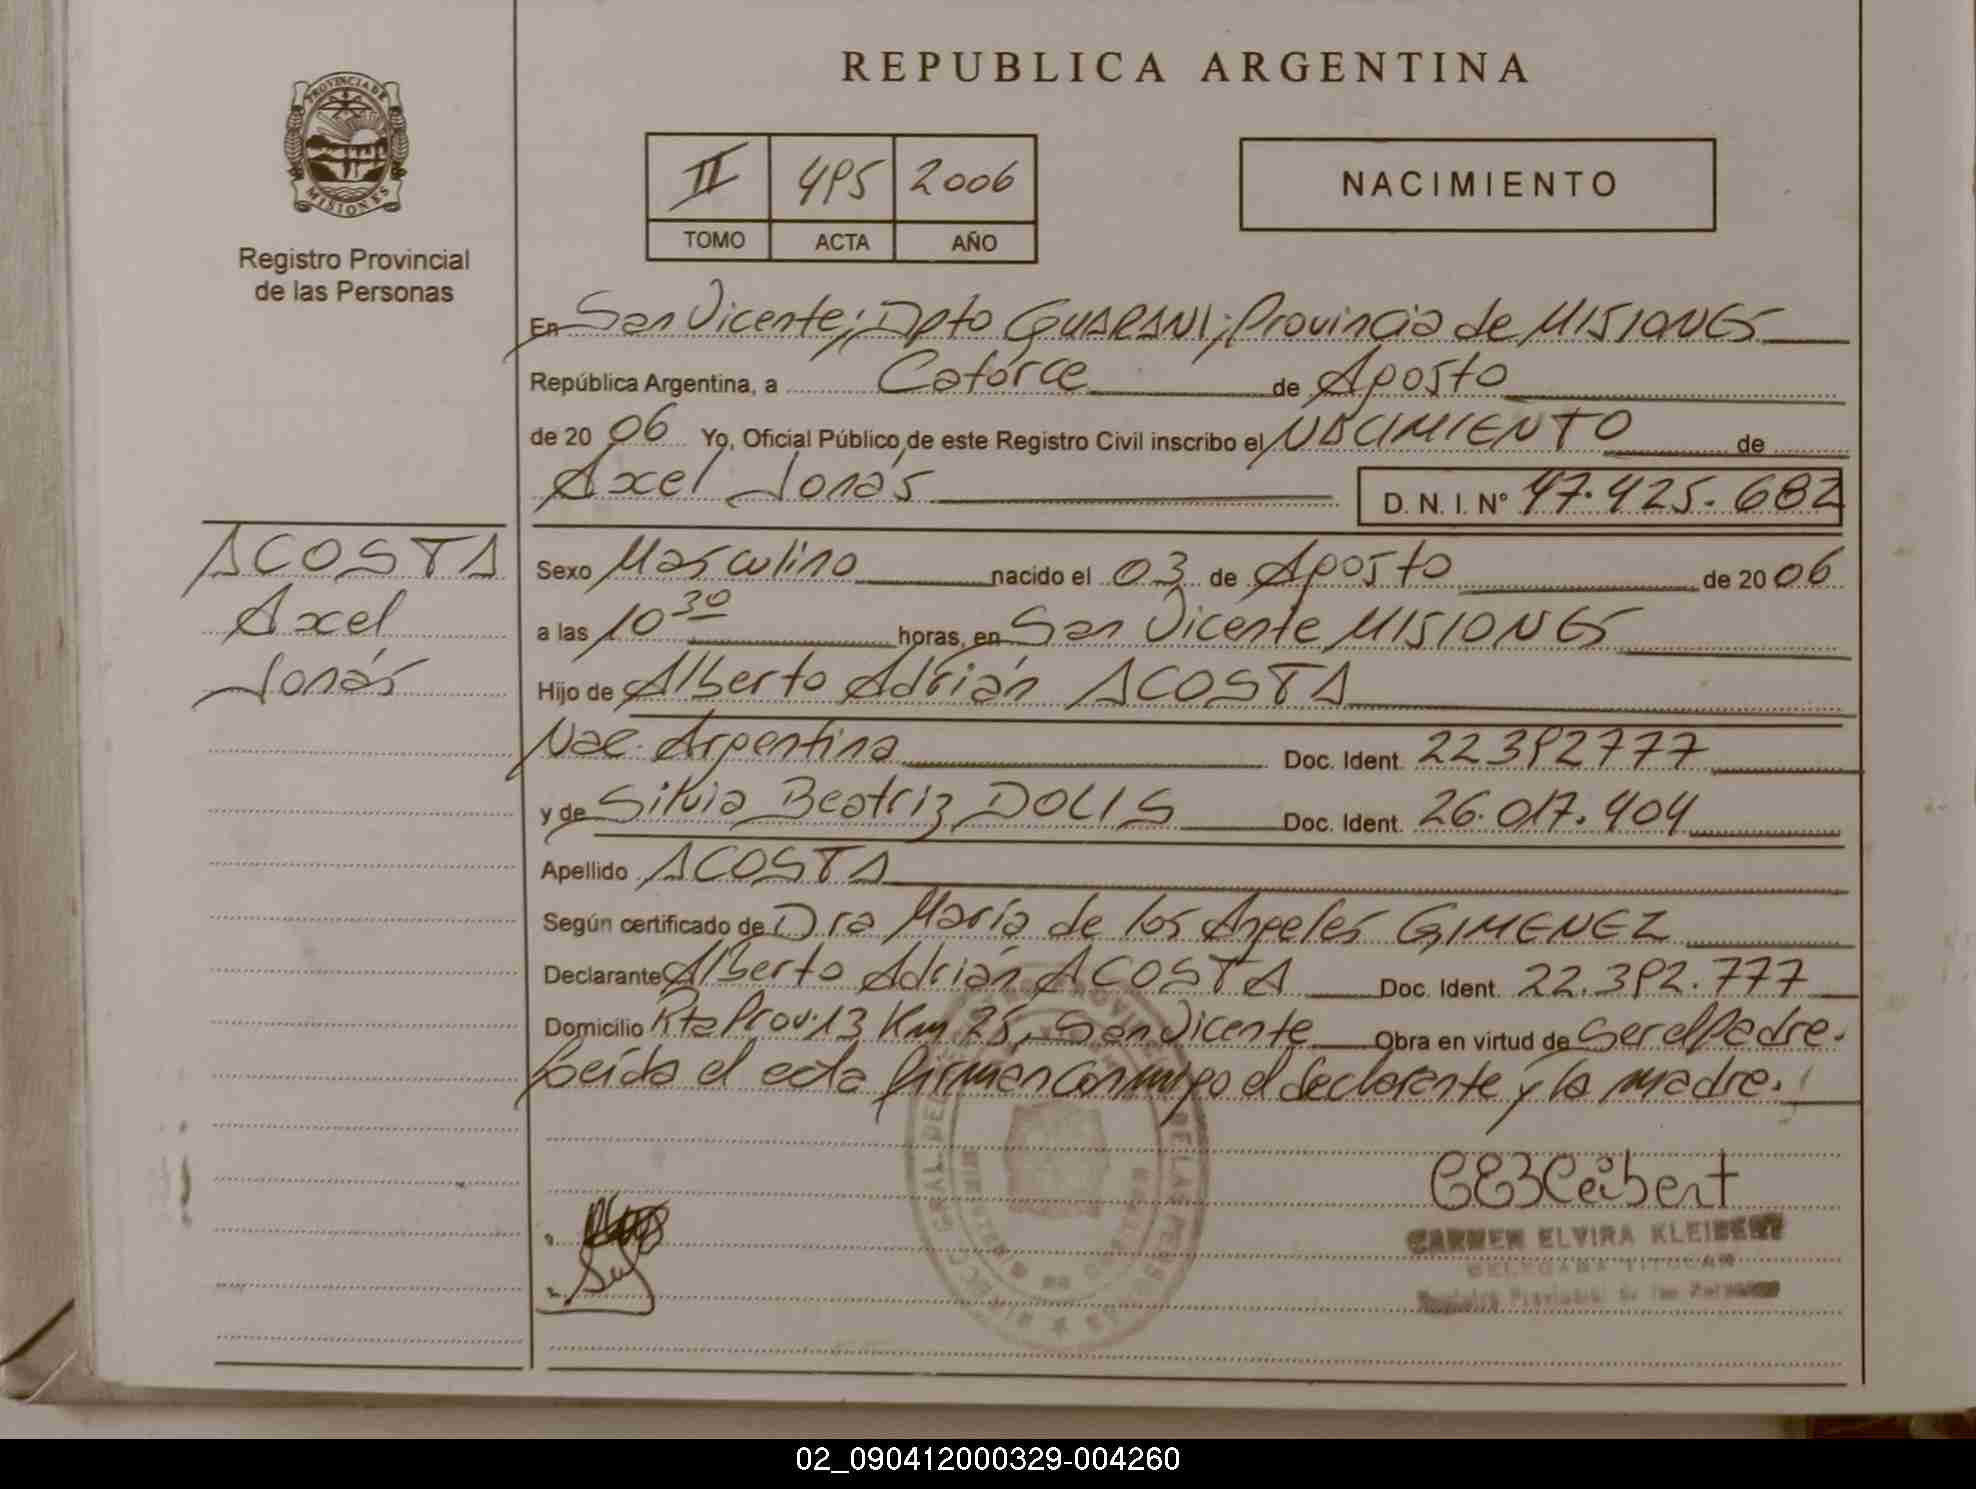 REPUBLICA ARGENTINA
PROVINCIA DE
MISIONES
Registro Provincial
de las Personas
II 495 2006
TOMO ACTA AÑO
NACIMIENTO
En San Vicente; Dpto GUARANI; Provincia de MISIONES
República Argentina, a Catorce de Agosto
de 20 06 Yo, Oficial Público de este Registro Civil inscribo el NACIMIENTO de
Axel Jonás D. N. I. Nº 47.425.682
ACOSTA
Axel
Jonás
Sexo Masculino nacido el 03 de Agosto de 20 06
a las 10 30 horas, en San Vicente MISIONES
Hijo de Alberto Adrián ACOSTA
Nac. Argentina Doc. Ident. 22392777
y de Silvia Beatriz DOLIS Doc. Ident. 26.017.404
Apellido ACOSTA
Según certificado de Dra María de los Angeles GIMENEZ
Declarante Alberto Adrián ACOSTA Doc. Ident. 22.392.777
Domicilio Rta Prov. 13 Km 25, San Vicente Obra en virtud de Ser el Padre.
Leída el acta firman conmigo el declarante y la madre.
CARMEN ELVIRA KLEIBERT
DELEGADA TITULAR
Registro Provincial de las Personas
02_090412000329-004260